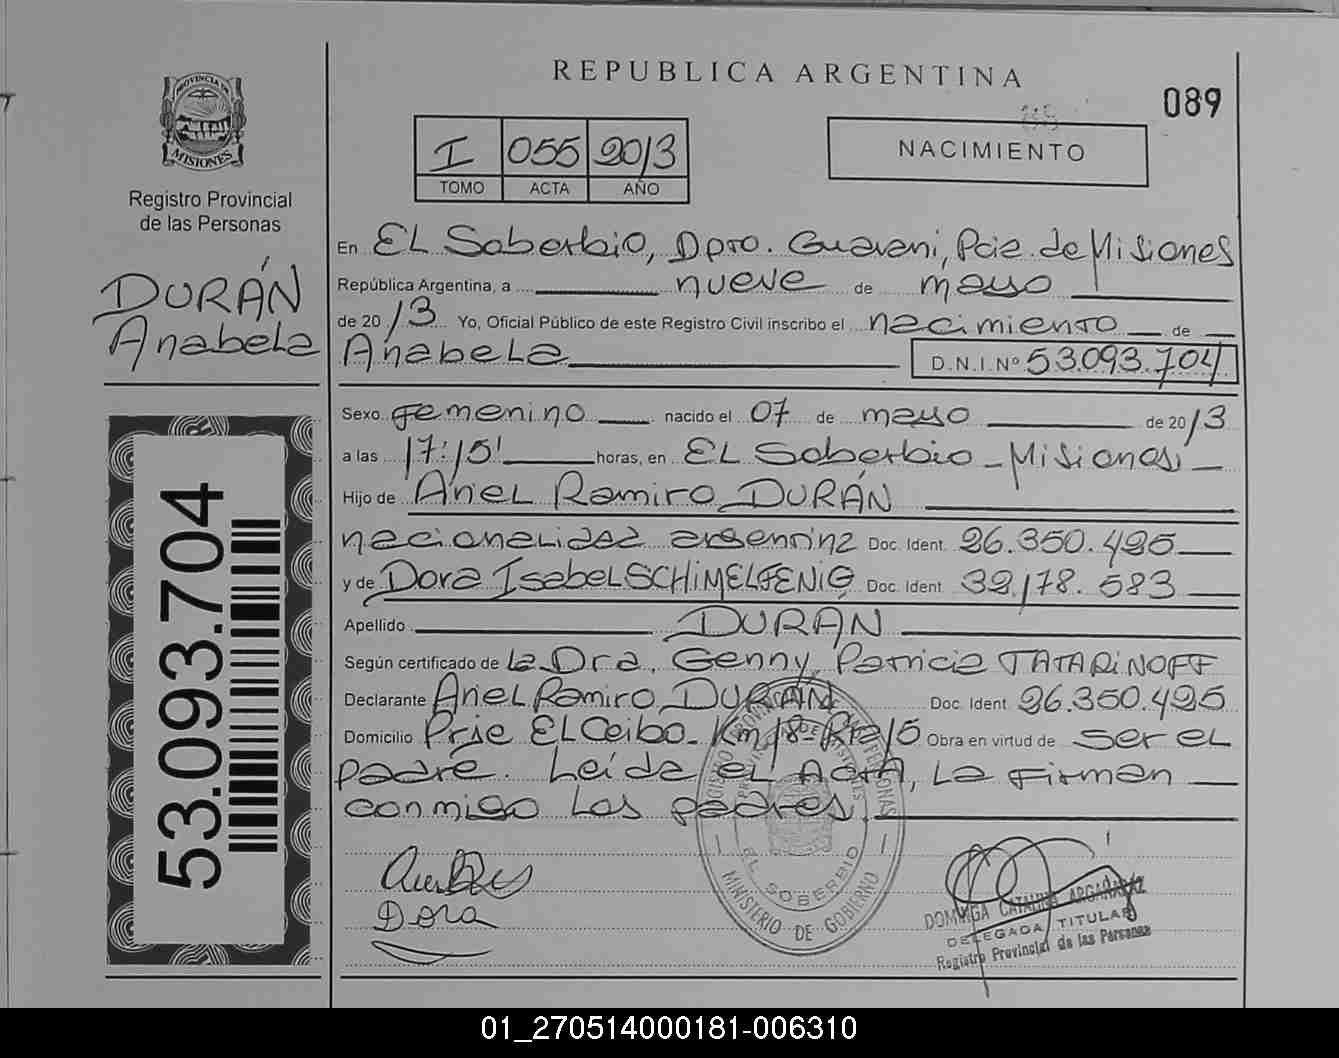 REPUBLICA ARGENTINA
089
PROVINCIA DE MISIONES
Registro Provincial
de las Personas
DURÁN
Anabela
53.093.704
I 055 2013
TOMO ACTA AÑO
NACIMIENTO
En EL Soberbio, Dpto. Guaraní, Pcia. de Misiones
República Argentina, a nueve de mayo
de 2013 Yo, Oficial Público de este Registro Civil inscribo el nacimiento de
Anabela D.N.I. Nº 53.093.704
Sexo femenino nacido el 07 de mayo de 2013
a las 17:15' horas, en EL Soberbio - Misiones
Hijo de Ariel Ramiro DURÁN
nacionalidad argentina Doc. Ident. 26.350.425
y de Dora Isabel SCHIMELFENIG Doc. Ident 32.178.583
Apellido DURÁN
Según certificado de la Dra. Genny Patricia TATARiNOFF
Declarante Ariel Ramiro DURÁN Doc. Ident 26.350.425
Domicilio Prje EL Ceibo - Km 18 - Rta 15 Obra en virtud de ser el
padre. Leída el Acta, la firman
conmigo los padres.
Dora
EL SOBERBIO
MINISTERIO DE GOBIERNO
DOMINGA CATALINA ARGAÑARAZ
DELEGADA TITULAR
Registro Provincial de las Personas
01_270514000181-006310